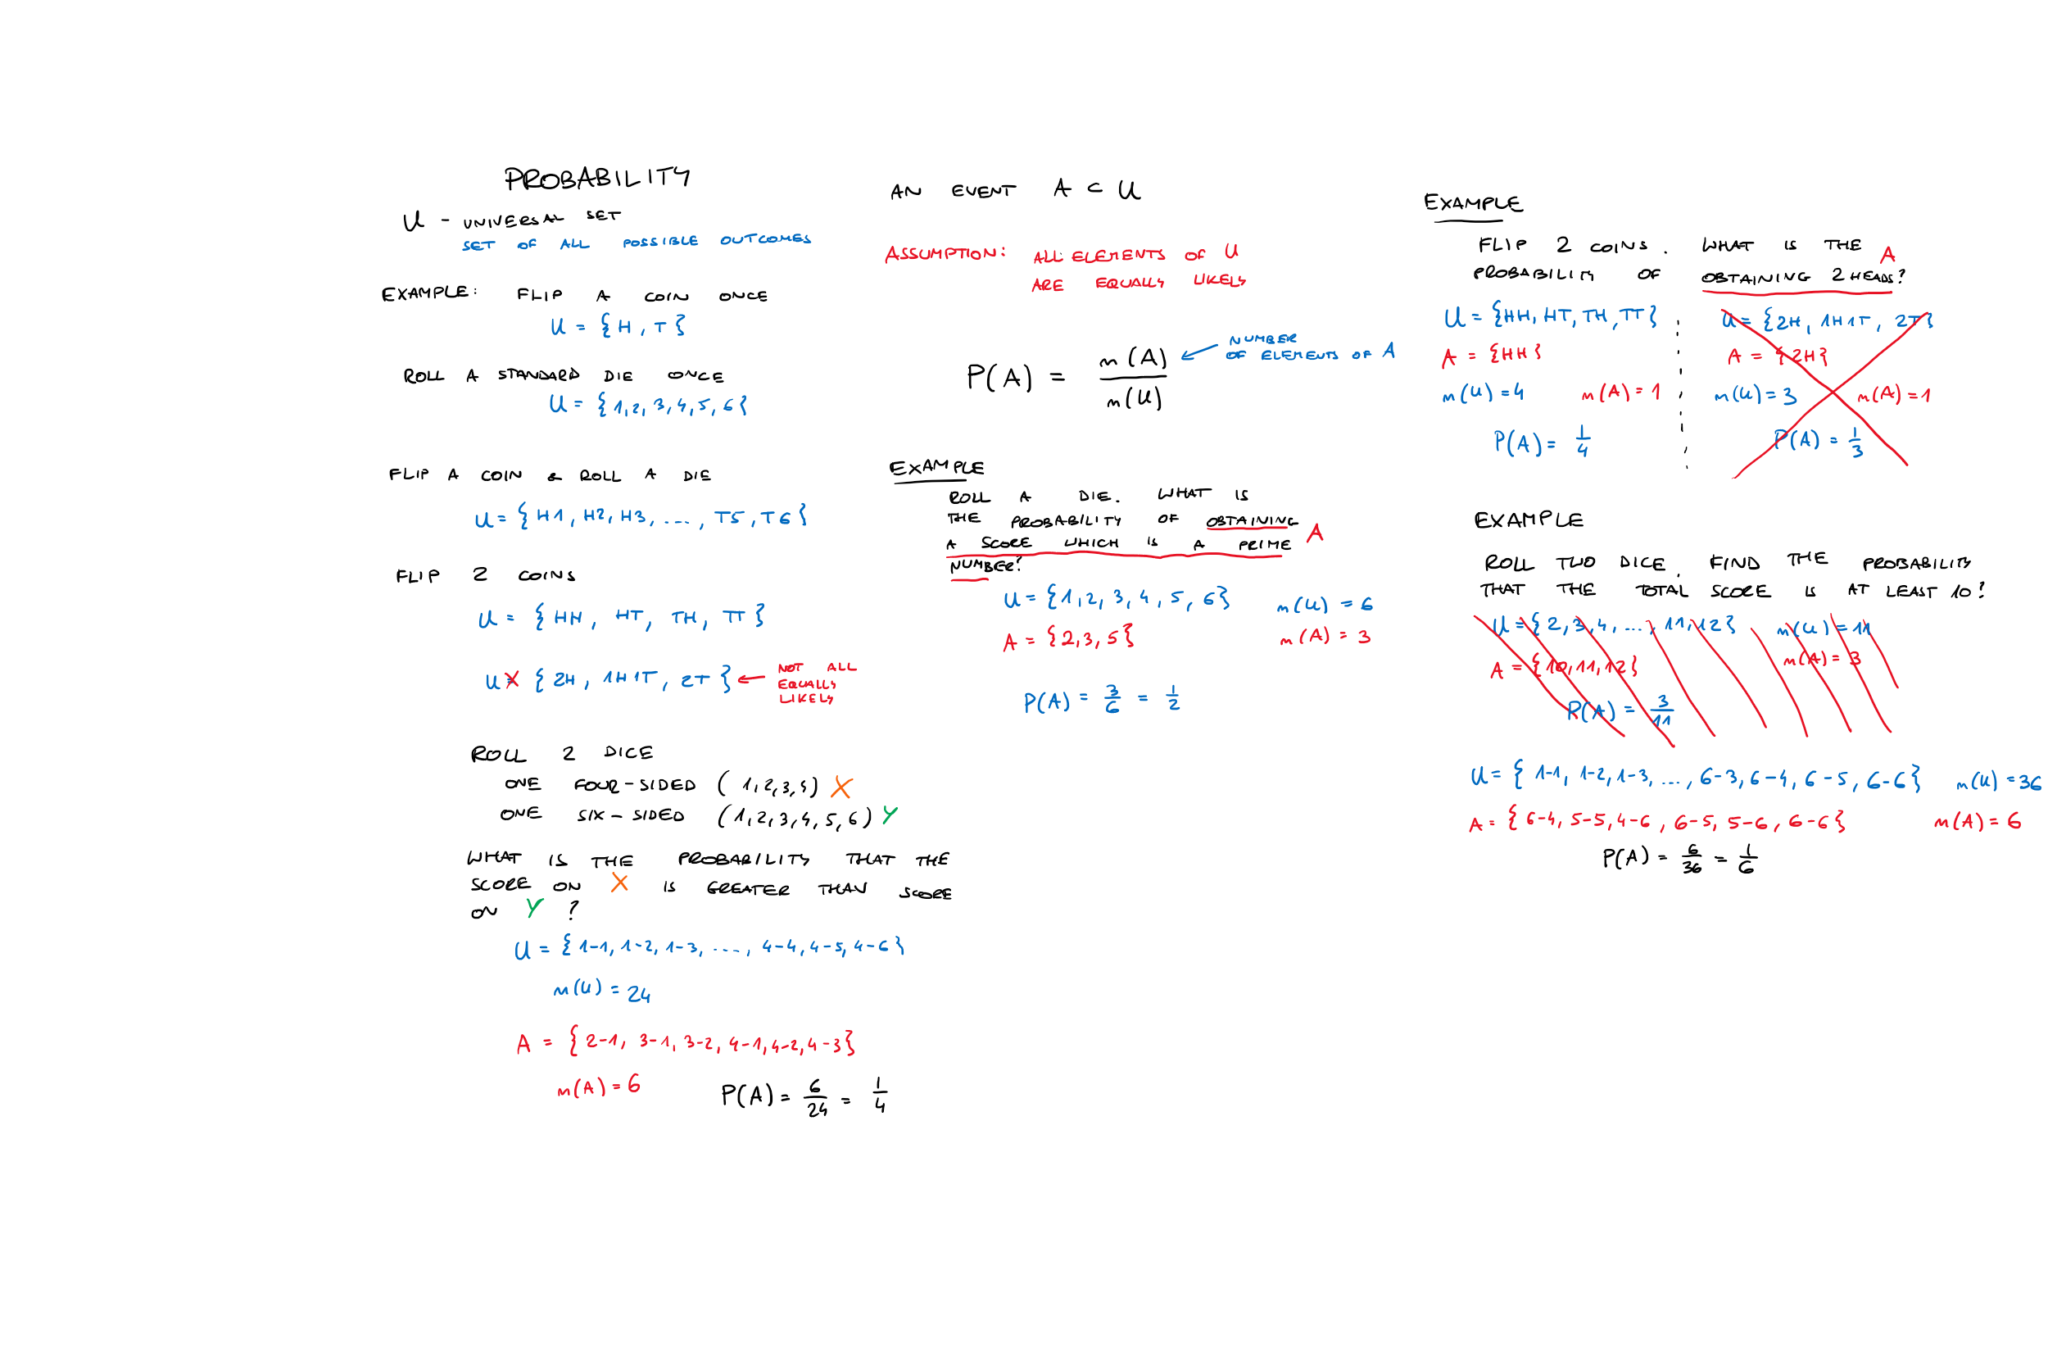 PROBABILITY
U - UNIVERSAL SET
SET OF ALL POSSIBLE OUTCOMES
EXAMPLE: FLIP A COIN ONCE
U = {H, T}
ROLL A STANDARD DIE ONCE
U = {1, 2, 3, 4, 5, 6}
FLIP A COIN & ROLL A DIE
U = {H1, H2, H3, ...., T5, T6}
FLIP 2 COINS
U = {HH, HT, TH, TT}
U = {2H, 1H1T, 2T} ← NOT ALL
EQUALLY
LIKELY
ROLL 2 DICE
ONE FOUR-SIDED (1,2,3,4) X
ONE SIX-SIDED (1,2,3,4,5,6) Y
WHAT IS THE PROBABILITY THAT THE
SCORE ON X IS GREATER THAN SCORE
ON Y ?
U = {1-1, 1-2, 1-3, ...., 4-4, 4-5, 4-6}
n(U) = 24
A = {2-1, 3-1, 3-2, 4-1, 4-2, 4-3}
n(A) = 6
P(A) = 6/24 = 1/4
AN EVENT A ⊂ U
ASSUMPTION: ALL ELEMENTS OF U
ARE EQUALLY LIKELY
P(A) = n(A)/n(U) ← NUMBER
OF ELEMENTS OF A
EXAMPLE
ROLL A DIE. WHAT IS
THE PROBABILITY OF OBTAINING
A SCORE WHICH IS A PRIME A
NUMBER?
U = {1, 2, 3, 4, 5, 6} n(U) = 6
A = {2, 3, 5} n(A) = 3
P(A) = 3/6 = 1/2
EXAMPLE
FLIP 2 COINS. WHAT IS THE A
PROBABILITY OF OBTAINING 2 HEADS?
U = {HH, HT, TH, TT}
A = {HH}
n(U) = 4 n(A) = 1
P(A) = 1/4
U = {2H, 1H1T, 2T}
A = {2H}
n(U) = 3 n(A) = 1
P(A) = 1/3
EXAMPLE
ROLL TWO DICE. FIND THE PROBABILITY
THAT THE TOTAL SCORE IS AT LEAST 10?
U = {2, 3, 4, ..., 11, 12} n(U) = 11
A = {10, 11, 12} n(A) = 3
P(A) = 3/11
U = {1-1, 1-2, 1-3, ..., 6-3, 6-4, 6-5, 6-6} n(U) = 36
A = {6-4, 5-5, 4-6, 6-5, 5-6, 6-6} n(A) = 6
P(A) = 6/36 = 1/6